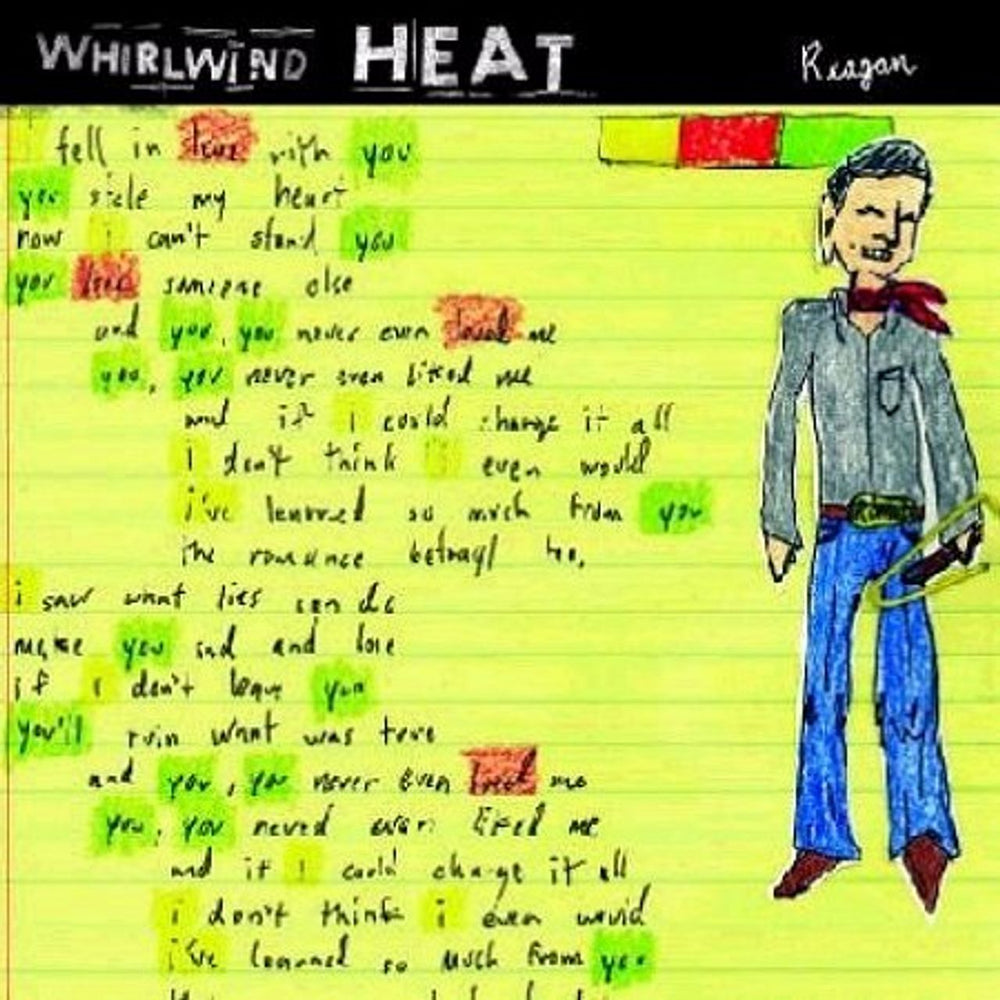 WHIRLWIND HEAT Reagan
i fell in love with you
you stole my heart
now i can't stand you
you love someone else
and you, you never even loved me
you, you never even liked me
and if i could change it all
i don't think i even would
i've learned so much from you
the romance betrayl too,
i saw what lies can do
make you sad and
if i don't leave you
you'll ruin what was true
and you, you never even loved me
you, you never even liked me
and if i could change it all
i don't think i even would
i've learned so much from you